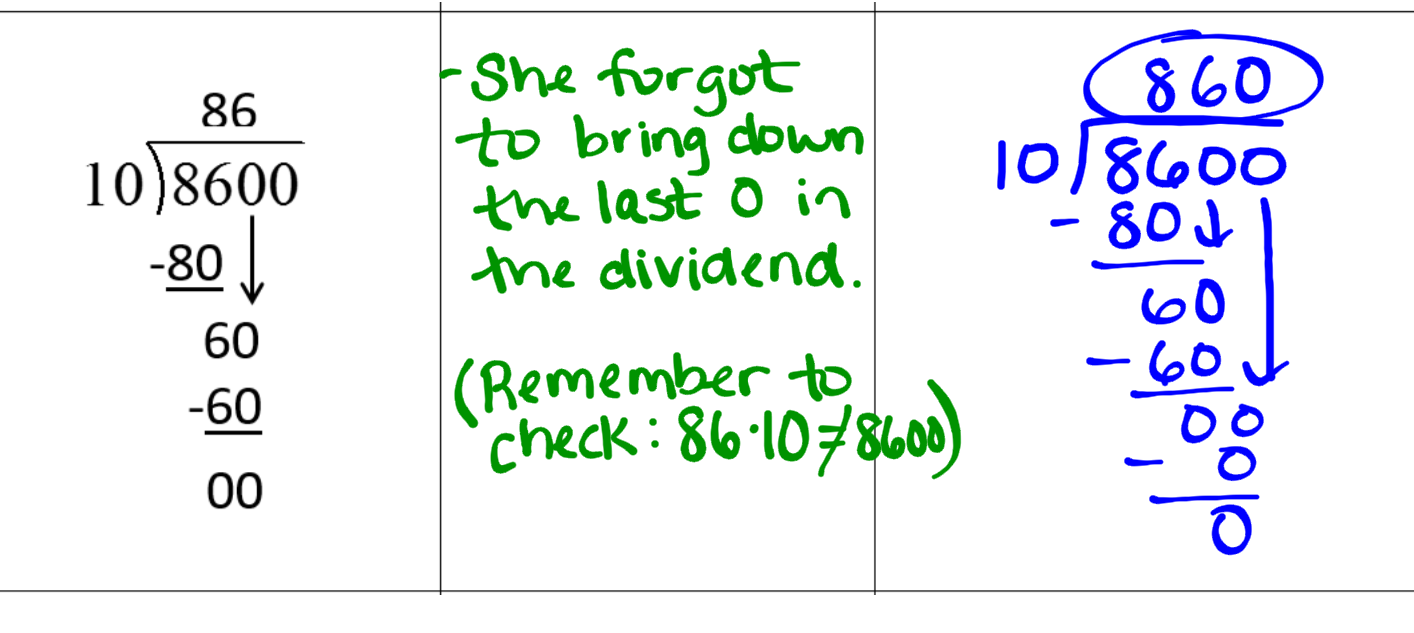 86
10)8600
-80
60
-60
00
-She forgot
to bring down
the last 0 in
the dividend.
(Remember to
check: 86·10≠8600)
860
10)8600
-80
60
-60
00
- 0
0